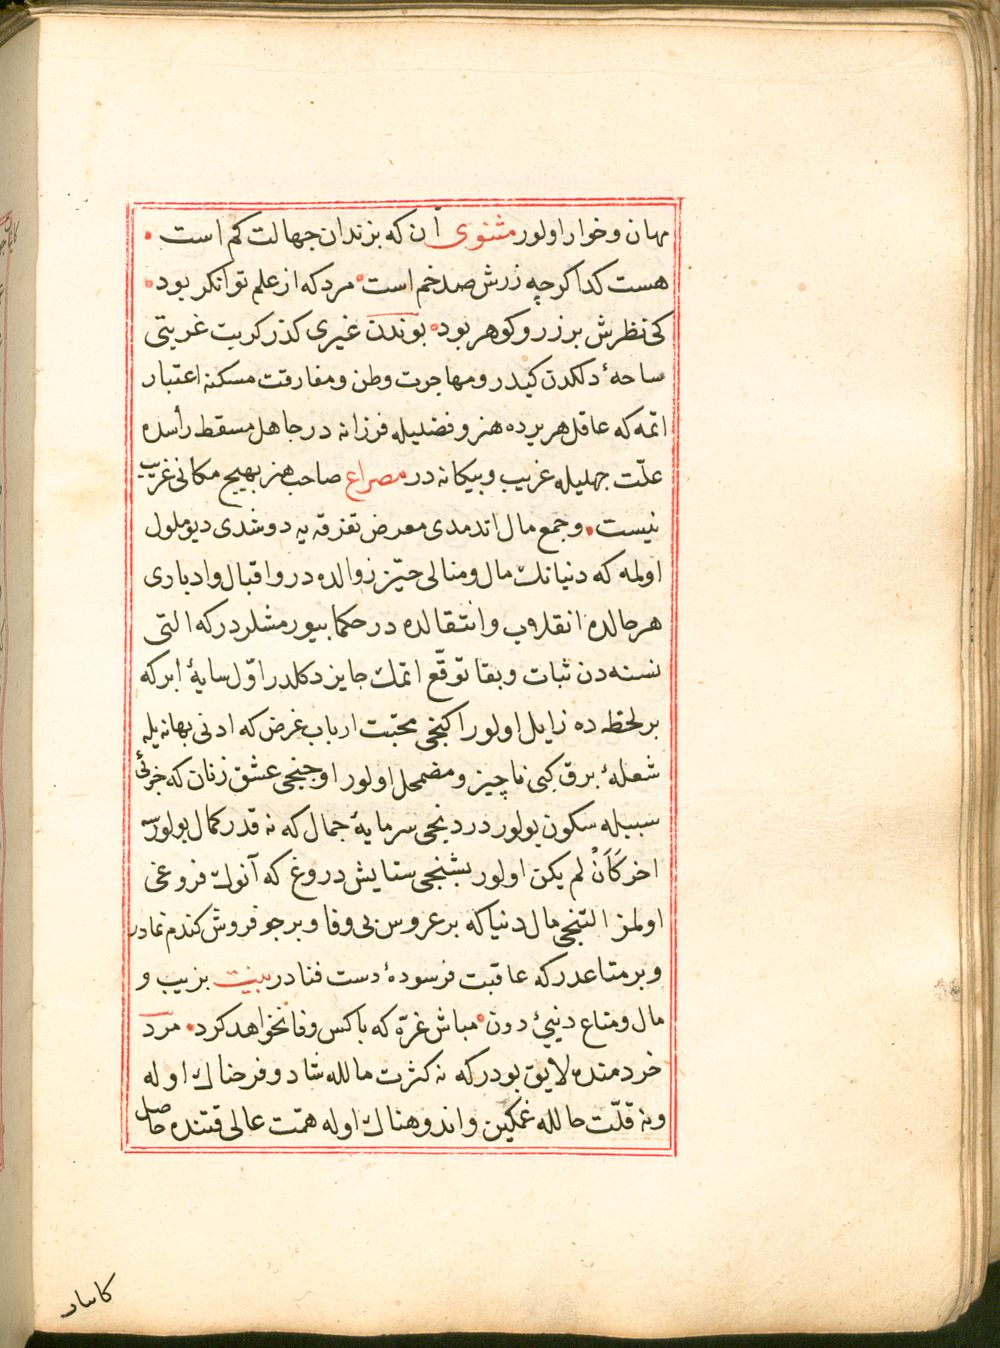 مهان وخوار اولور مثنوی آن که بزندان جهالت کم است
هست کدا کرچه زرش صد خم است مرد که از علم توانکر بود
کی نظرش بر زر و کوهر بود بوندن غیری کذر کربت غربتی
ساحهٔ دلکدن کیدر ومهاجرت وطن ومفارقت مسکنه اعتبار
اتمه که عاقل هر یرده هنر وفضلیله فرزانه در جاهل مسقط رأسده
علّت جهلیله غریب وبیکانه در مصراع صاحب هنر بهیچ مکانی غریب
نیست وجمع مال اندمدی معرض تفرقه یه دوشدی دیو ملول
اولمه که دنیانك مال ومنالی حیّز زوالده در واقبال وادباری
هر حالده انقلاب وانتقالده در حکما بیورمشلردر که التی
نسنه دن ثبات وبقا توقّع اتمك جایز دکلدر اوّل سایهٔ ابر که
بر لحظه ده زایل اولور اکینجی محبّت ارباب غرض که ادنی بهانه یله
شعلهٔ برق کبی ناچیز ومضمحل اولور اوجنجی عشق زنان که جزئی
سببیله سکون بولور دردنجی سرمایهٔ جمال که نه قدر کمال بولورسه
اخر کَاَنْ لم یکن اولور بشنجی ستایش دروغ که آنوك فروغی
اولمز التنجی مال دنیا که بر عروس بی وفا وبر جو فروش کندم نمادر
وبر متاعدر که عاقبت فرسودهٔ دست فنادر بیت بزیب و
مال ومتاع دنیئ دون مباش غرّه که باکس وفا نخواهد کرد مرد
خردمنده لایق بودر که نه کثرت مالله شاد وفرحناك اوله
ونه قلّت حالله غمکین واندوهناك اوله همّت عالی قتنده حاصل
کاساد